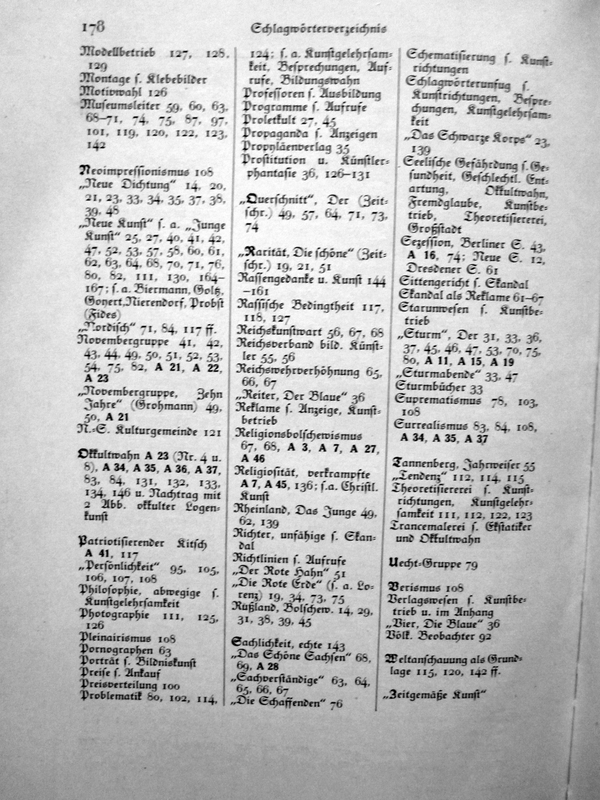 178
Schlagwörterverzeichnis
Modellbetrieb 127, 128,
129
Montage s. Klebebilder
Motivwahl 126
Museumsleiter 59, 60, 63,
68–71, 74, 75, 87, 97,
101, 119, 120, 122, 123,
142
Neoimpressionismus 108
„Neue Dichtung“ 14, 20,
21, 23, 33, 34, 35, 37, 38,
39, 48
„Neue Kunst“ s. a. „Junge
Kunst“ 25, 27, 40, 41, 42,
47, 52, 53, 57, 58, 60, 61,
62, 63, 64, 68, 70, 71, 76,
80, 82, 111, 130, 164–
167; s. a. Biermann, Goltz,
Goyert, Nierendorf, Probst
(Fides)
„Nordisch“ 71, 84, 117 ff.
Novembergruppe 41, 42,
43, 44, 49, 50, 51, 52, 53,
54, 75, 82, A 21, A 22,
A 23
„Novembergruppe, Zehn
Jahre“ (Grohmann) 49,
50, A 21
N.-S. Kulturgemeinde 121
Okkultwahn A 23 (Nr. 4 u.
8), A 34, A 35, A 36, A 37,
83, 84, 131, 132, 133,
134, 146 u. Nachtrag mit
2 Abb. okkulter Logen-
kunst
Patriotisierender Kitsch
A 41, 117
„Persönlichkeit“ 95, 105,
106, 107, 108
Philosophie, abwegige s.
Kunstgelehrsamkeit
Photographie 111, 125,
126
Pleinairismus 108
Pornographen 63
Porträt s. Bildniskunst
Preise s. Ankauf
Preisverteilung 100
Problematik 80, 102, 114,
124; s. a. Kunstgelehrsam-
keit, Besprechungen, Auf-
rufe, Bildungswahn
Professoren s. Ausbildung
Programme s. Aufrufe
Proletkult 27, 45
Propaganda s. Anzeigen
Propyläenverlag 35
Prostitution u. Künstler-
phantasie 36, 126–131
„Querschnitt“, Der (Zeit-
schr.) 49, 57, 64, 71, 73,
74
„Rarität, Die schöne“ (Zeit-
schr.) 19, 21, 51
Rassengedanke u. Kunst 144
–161
Rassische Bedingtheit 117,
118, 127
Reichskunstwart 56, 67, 68
Reichsverband bild. Künst-
ler 55, 56
Reichswehrverhöhnung 65,
66, 67
„Reiter, Der Blaue“ 36
Reklame s. Anzeige, Kunst-
betrieb
Religionsbolschewismus
67, 68, A 3, A 7, A 27,
A 46
Religiosität, verkrampfte
A 7, A 45, 136; s.a. Christl.
Kunst
Rheinland, Das Junge 49,
62, 139
Richter, unfähige s. Skan-
dal
Richtlinien s. Aufrufe
„Der Rote Hahn“ 51
„Die Rote Erde“ (s. a. Lo-
renz) 19, 34, 73, 75
Rußland, Bolschew. 14, 29,
31, 38, 39, 45
Sachlichkeit, echte 143
„Das Schöne Sachsen“ 68,
69, A 28
„Sachverständige“ 63, 64,
65, 66, 67
„Die Schaffenden“ 76
Schematisierung s. Kunst-
richtungen
Schlagwörterunfug s.
Kunstrichtungen, Bespre-
chungen, Kunstgelehrsam-
keit
„Das Schwarze Korps“ 23,
139
Seelische Gefährdung s. Ge-
sundheit, Geschlechtl. Ent-
artung, Okkultwahn,
Fremdglaube, Kunstbe-
trieb, Theoretisiererei,
Großstadt
Sezession, Berliner S. 43,
A 16, 74; Neue S. 12,
Dresdener S. 61
Sittengericht s. Skandal
Skandal als Reklame 61–67
Starunwesen s. Kunstbe-
trieb
„Sturm“, Der 31, 33, 36,
37, 45, 46, 47, 53, 70, 75,
80, A 11, A 15, A 19
„Sturmabende“ 33, 47
Sturmbücher 33
Suprematismus 78, 103,
108
Surrealismus 83, 84, 108,
A 34, A 35, A 37
Tannenberg, Jahrweiser 55
„Tendenz“ 112, 114, 115
Theoretisiererei s. Kunst-
richtungen, Kunstgelehr-
samkeit 111, 112, 122, 123
Trancemalerei s. Ekstatiker
und Okkultwahn
Uecht-Gruppe 79
Verismus 108
Verlagswesen s. Kunstbe-
trieb u. im Anhang
„Vier, Die Blaue“ 36
Völk. Beobachter 92
Weltanschauung als Grund-
lage 115, 120, 142 ff.
„Zeitgemäße Kunst“